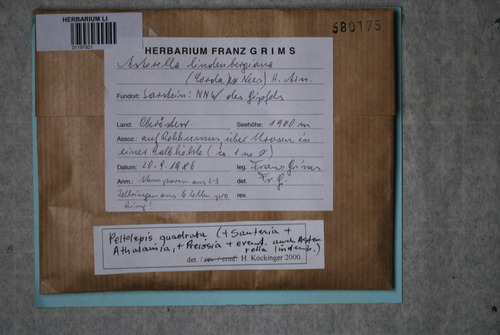 HERBARIUM LI
680175
HERBARIUM FRANZ GRIMS
Asterella lindenbergiana
(Corda ex Nees) H. Arn.
Fundort: Sarstein: NNW des Gipfels
Land: Oberösterr. Seehöhe: 1900 m
Assoz.: auf Rohhumus über Moosen in
einer Kalkhöhle
Datum: 20.9.1986 leg. Franz Grims
Anm.: aus 2-3 det. Fr. G.
Zellringen aus 6 Zellen pro rev.
Ring!
Peltolepis quadrata (+ Sauteria +
Athalamia, + Preissia + event. auch Aster-
rella lindenb.)
det. / rev. / conf. H. Köckinger 2000